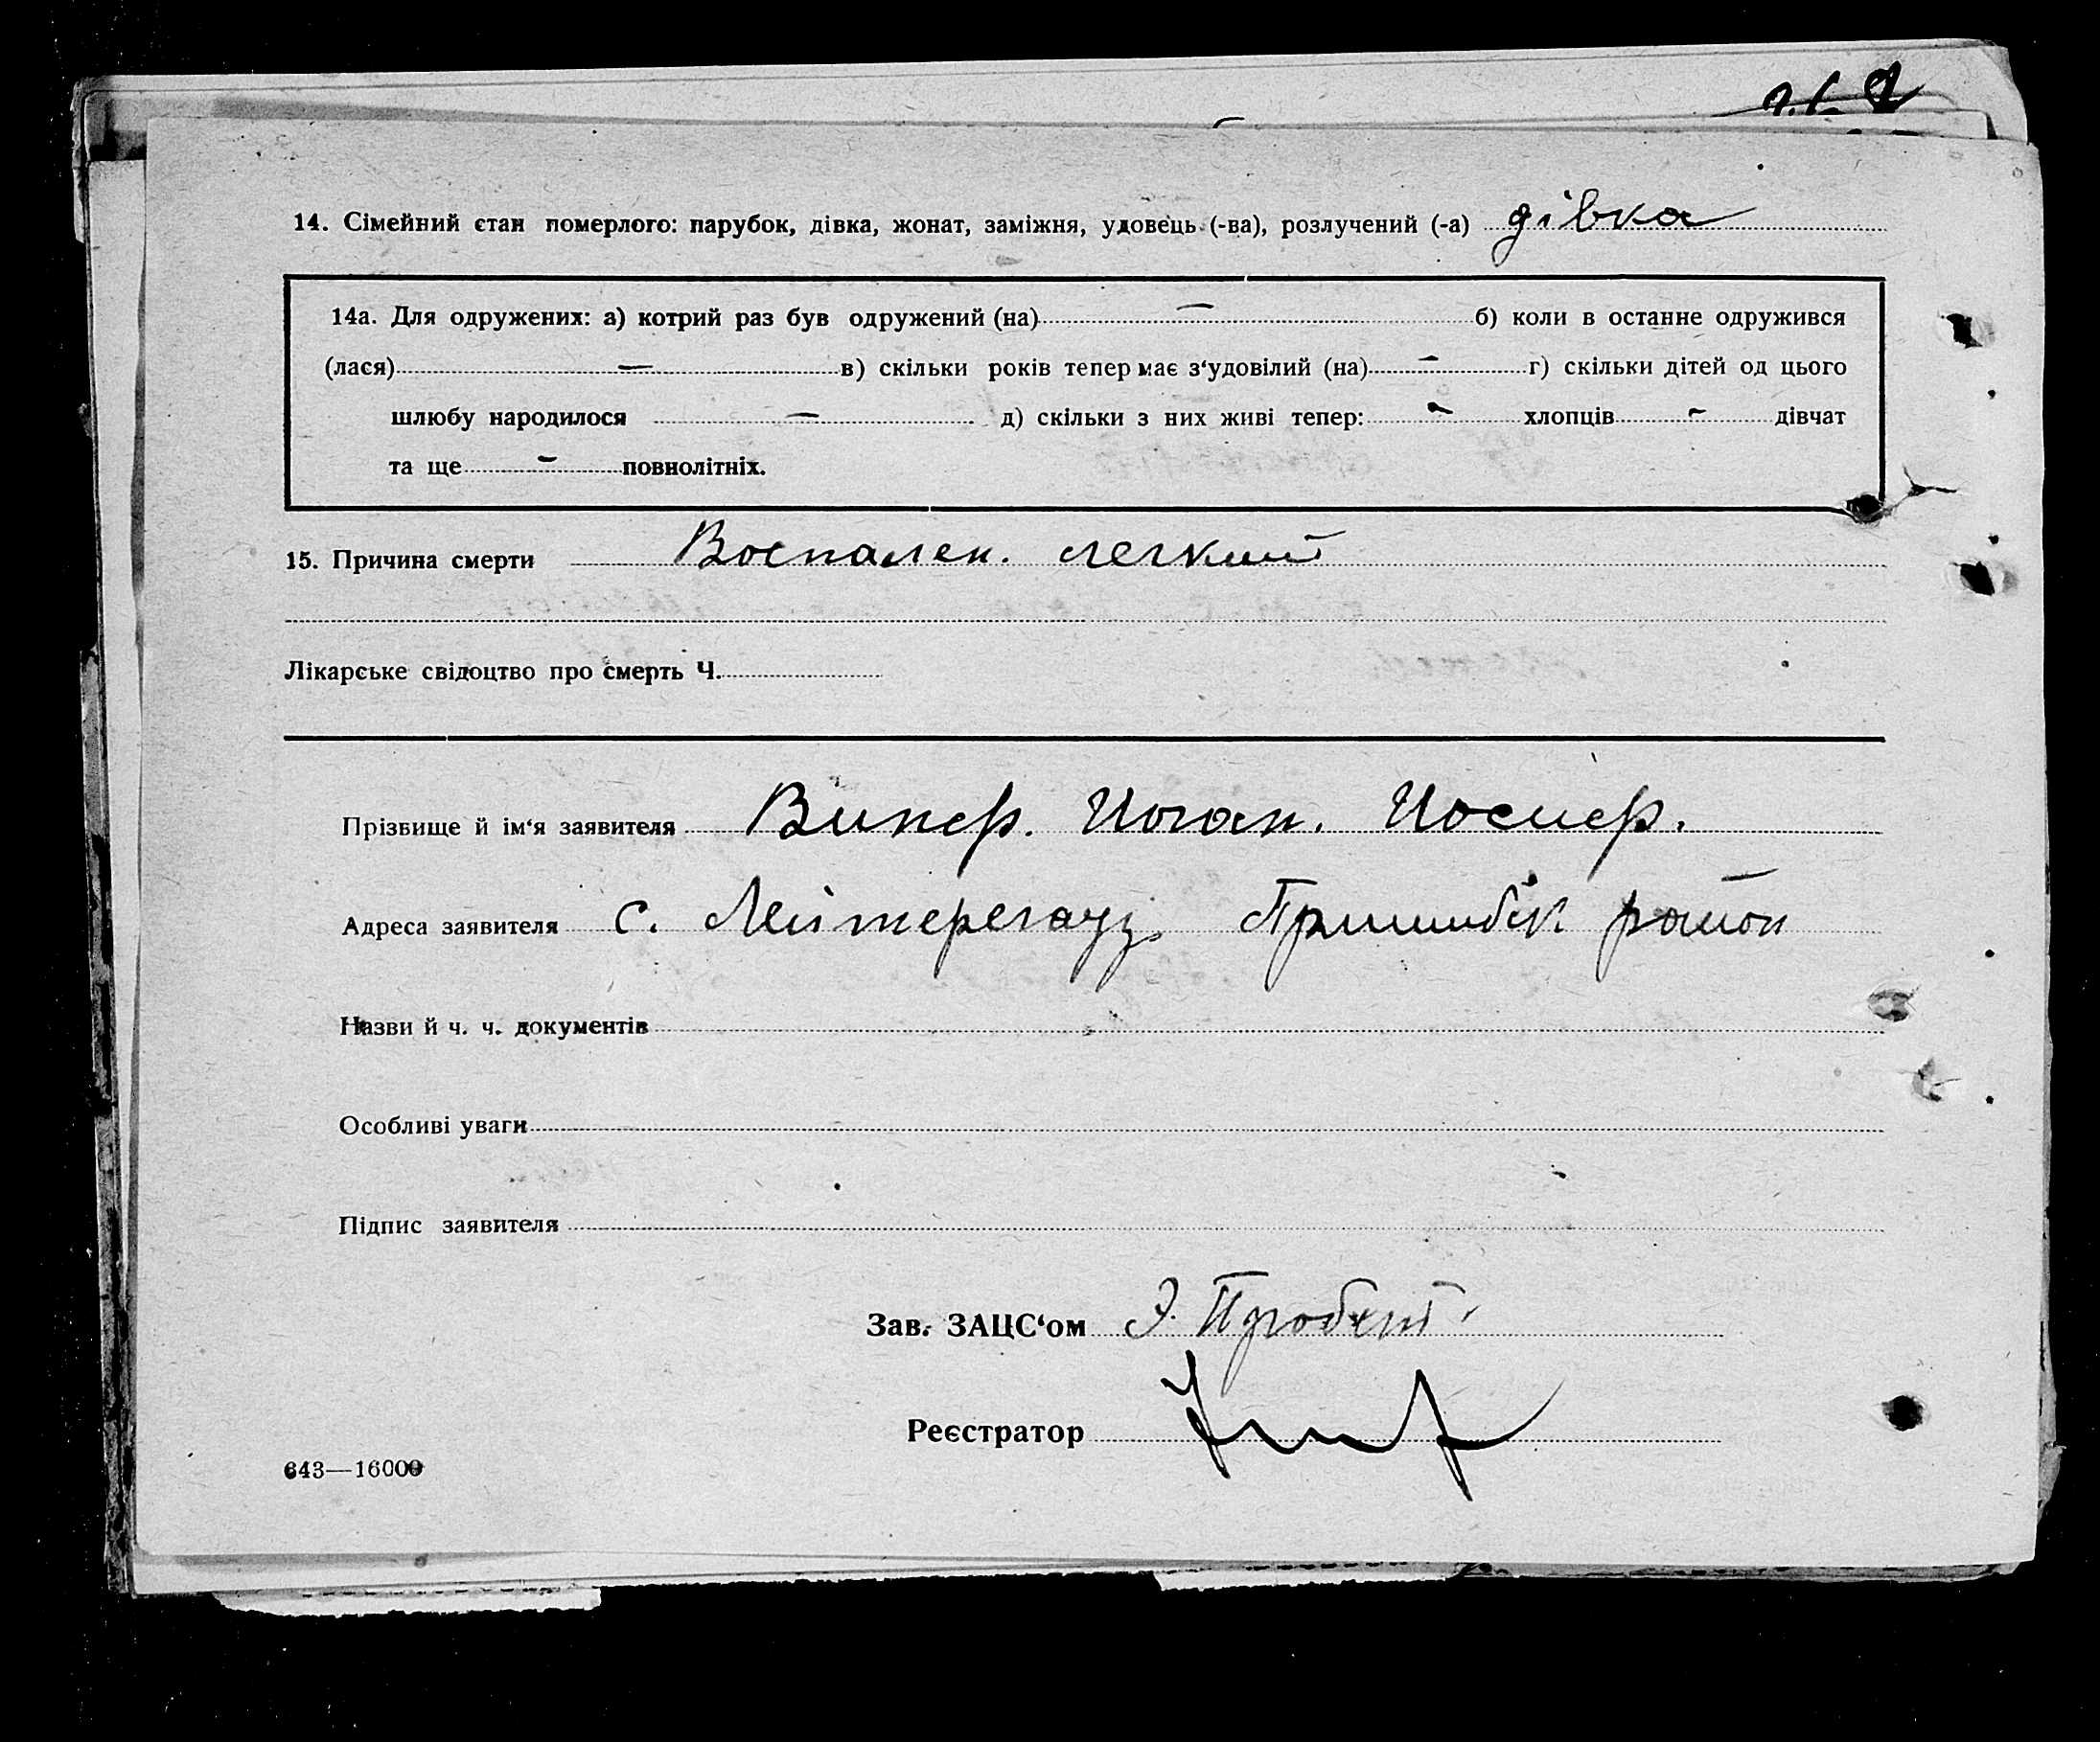 14. Сімейний стан померлого: парубок, дівка, жонат, заміжня, удовець (-ва), розлучений (-а) дівка
14а. Для одружених: а) котрий раз був одружений (на) — б) коли в останнє одружився
(лася) — в) скільки років тепер має з‘удовілий (на) — г) скільки дітей од цього
шлюбу народилося — д) скільки з них живі тепер: — хлопців — дівчат
та ще — повнолітніх.
15. Причина смерти Воспален. легкий
Лікарське свідоцтво про смерть Ч.
Прізвище й ім‘я заявителя Випер. Иоган. Иосиф.
Адреса заявителя с. Лейтерегауз Пришибск район
Назви й ч. ч. документів
Особливі уваги
Підпис заявителя
Зав. ЗАЦС‘ом Э.
Реєстратор
643—16000